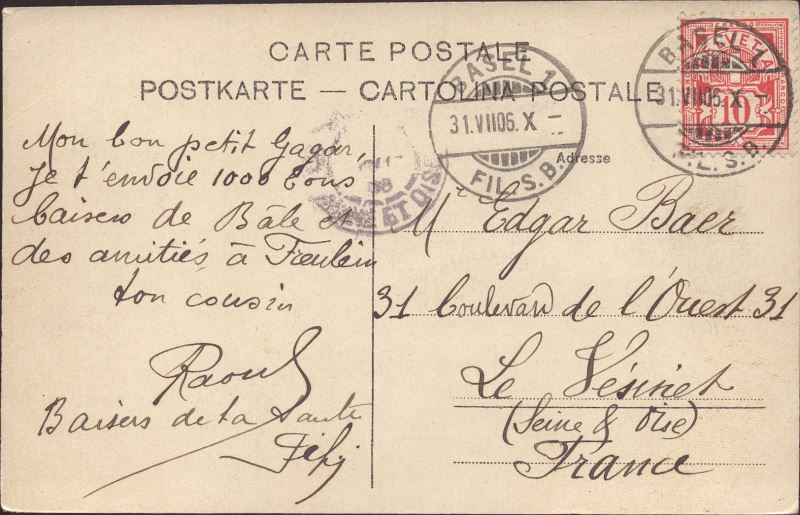 CARTE POSTALE
POSTKARTE — CARTOLINA POSTALE
BASEL 1
31.VII06.X –
FIL. S.B.
HELVETIA
10
BASEL 1
31.VII06.X –
FIL. S.B.
08
SEINE ET OISE
Adresse
Mon bon petit Gagar,
Je t'envoie 1000 bons
baisers de Bâle et
des amitiés à
ton cousin
Raoul
Baisers de ta tante
Fifi
Mr Edgar Baer
31 boulevard de l'Ouest 31
Le Vésinet
(Seine & Oise)
France